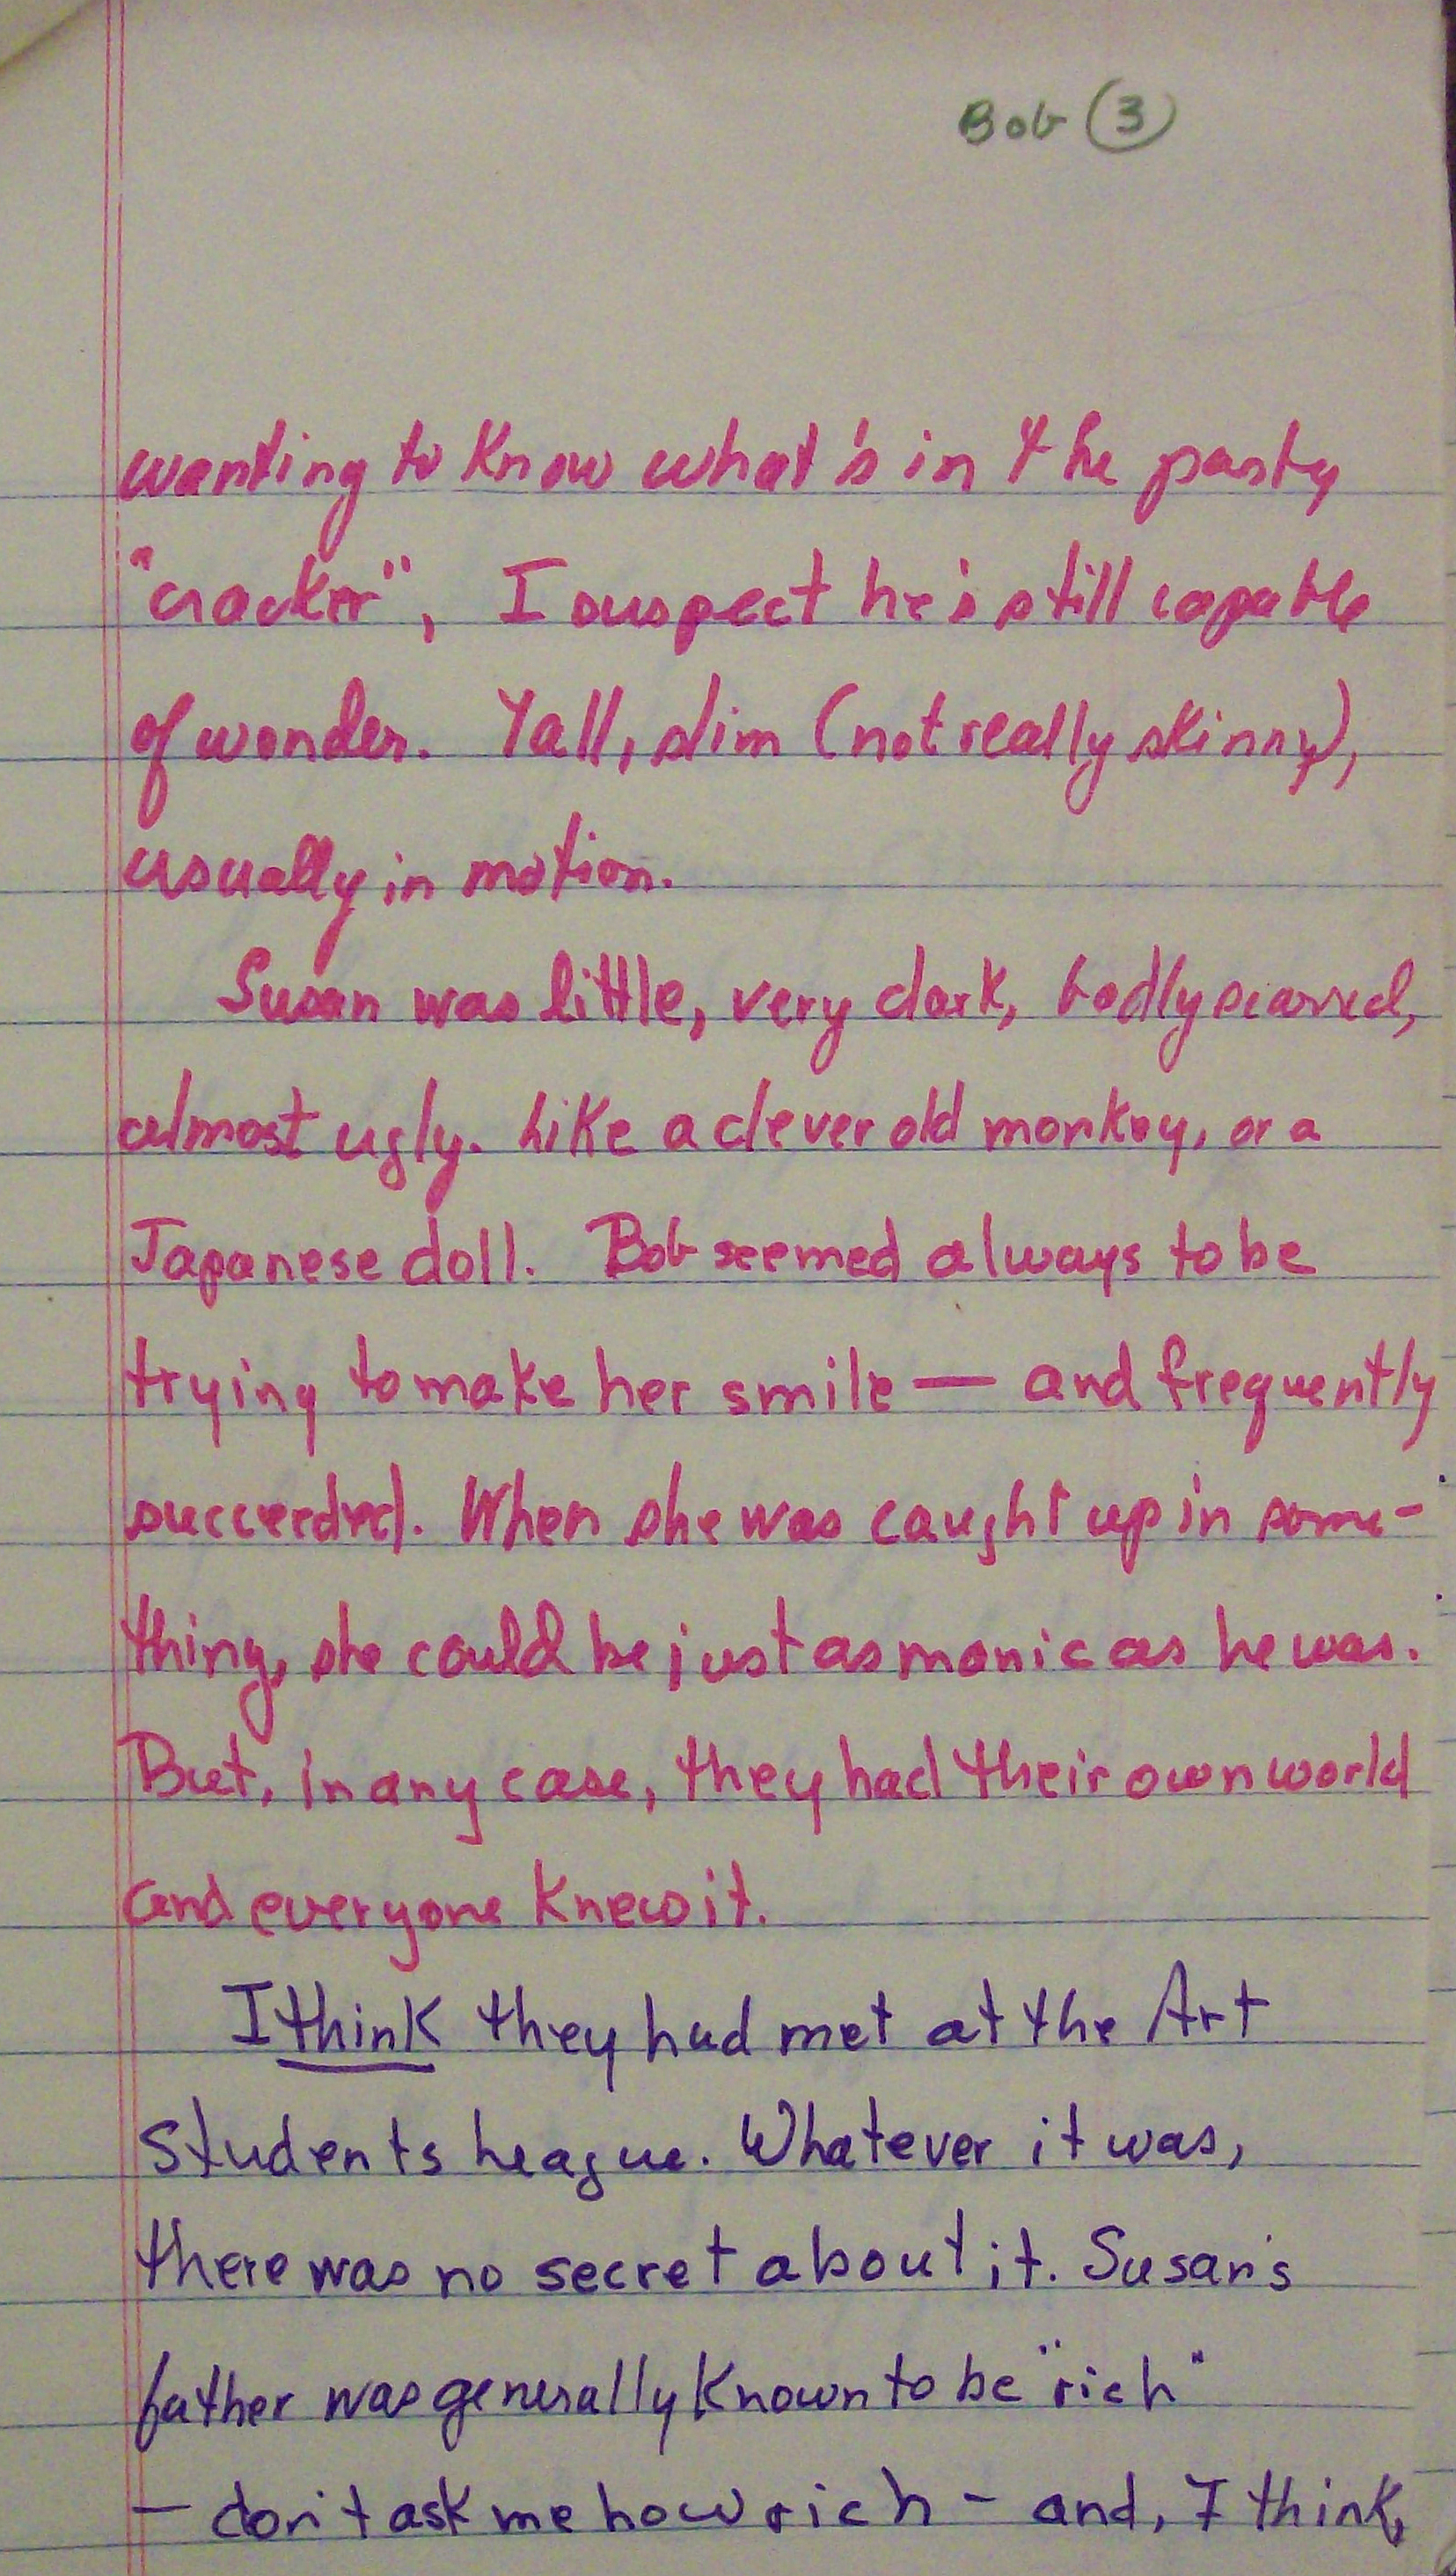 Bob (3)
wanting to know what's in the party
"cracker", I suspect he's still capable
of wonder. Tall, slim (not really skinny),
usually in motion.
Susan was little, very dark, badly scarred,
almost ugly. Like a clever old monkey, or a
Japanese doll. Bob seemed always to be
trying to make her smile — and frequently
succeeded. When she was caught up in some-
thing, she could be just as manic as he was.
But, in any case, they had their own world
and everyone knew it.
I think they had met at the Art
Students League. Whatever it was,
there was no secret about it. Susan's
father was generally known to be "rich"
— don't ask me how rich – and, I think,